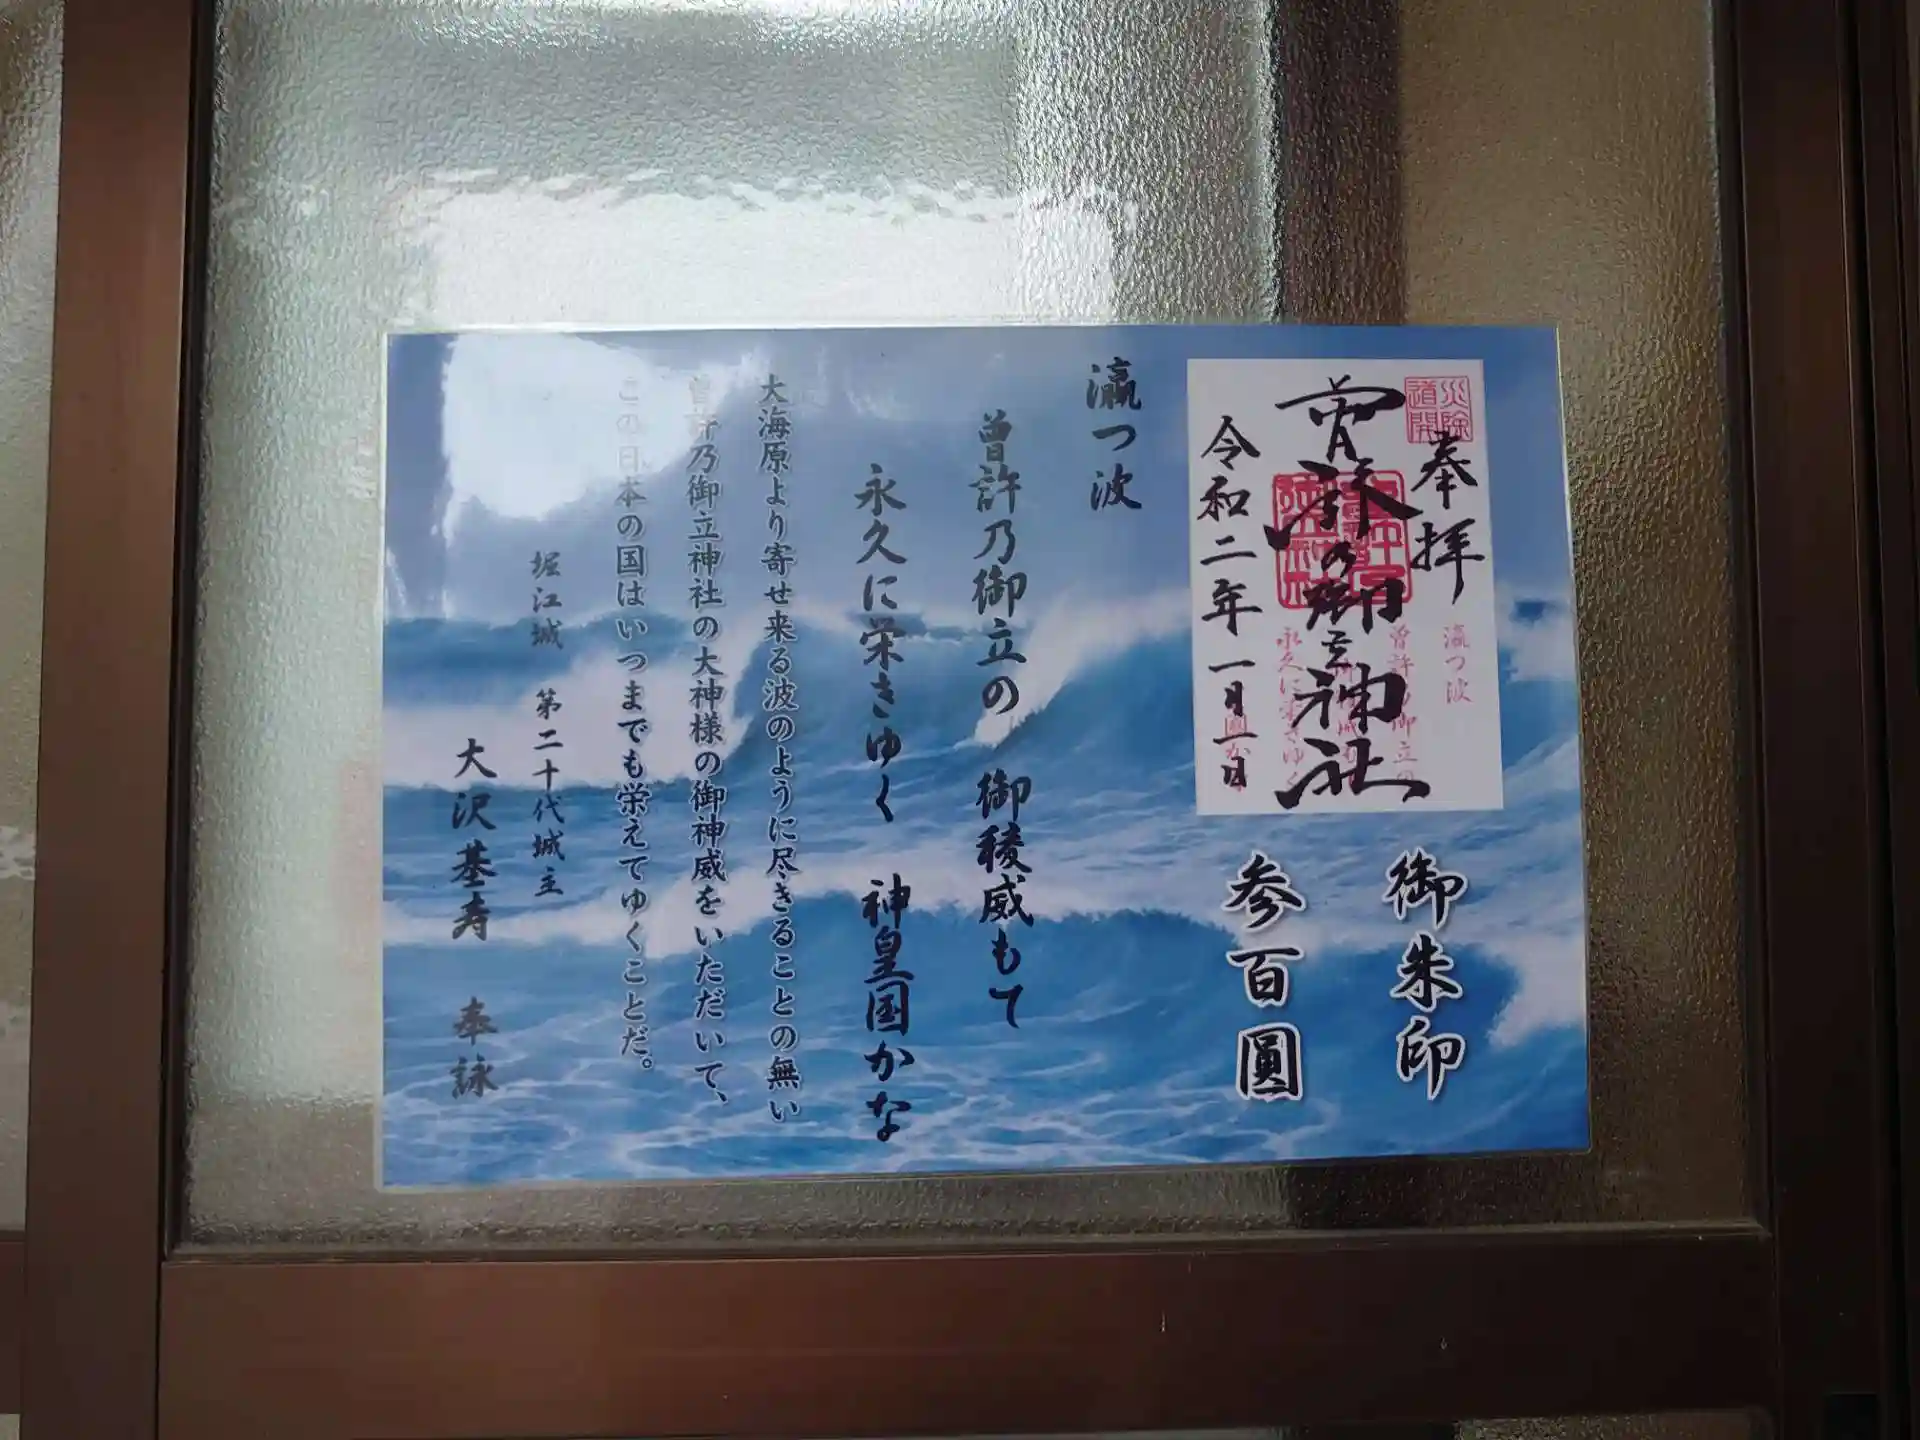 災除
道開
奉拝
曽許乃御立神社
令和二年一月一日
瀛つ波
曽許乃御立の
永久に栄きゆく
御朱印
参百圓
瀛つ波
曽許乃御立の 御稜威もて
永久に栄きゆく 神皇国かな
大海原より寄せ来る波のように尽きることの無い
曽許乃御立神社の大神様の御神威をいただいて、
この日本の国はいつまでも栄えてゆくことだ。
堀江城 第二十代城主
大沢基寿 奉詠